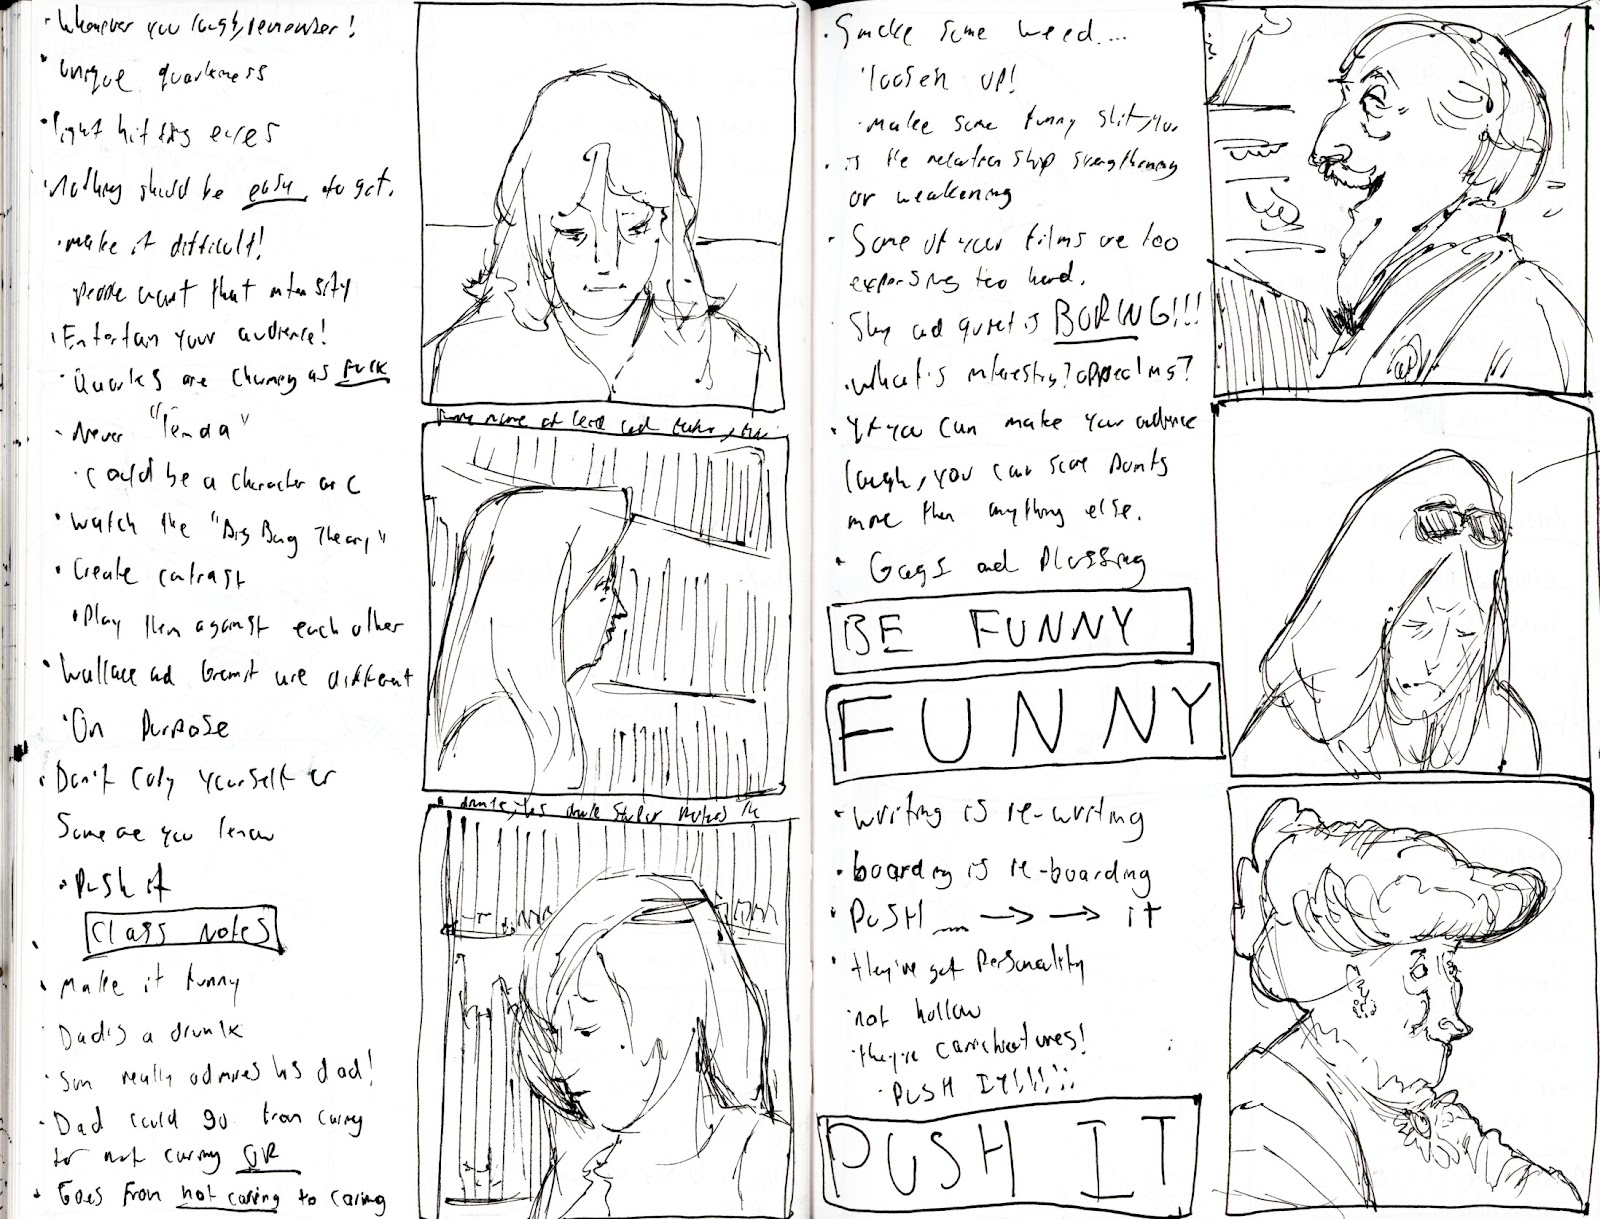 Whenever you laugh, remember!
unique quarkness
light hitting eyes
Nothing should be easy to get.
make it difficult!
people want that intensity
Entertain your audience!
Quarks are charming as FUCK
Never "kinda"
could be a character arc
Watch the "Big Bang Theory"
Create contrast
Play them against each other
Wallace and Gromit are different
On purpose
Don't copy yourself or
Someone you know
Push it
CLASS NOTES
Make it funny
Dad is a drunk
Son really admires his dad!
Dad could go from caring
to not caring OR
Goes from not caring to caring
drunk
Smoke some weed....
loosen up!
make some funny shit, you
is the relationship strengthening
or weakening
Some of your films are too
too hard.
Shy and quiet is BORING!!!
What's interesting? appealing?
If you can make your audience
laugh, you can score points
more than anything else.
Gags and Plussing
BE FUNNY
FUNNY
writing is re-writing
boarding is re-boarding
PUSH it
they've got personality
not hollow
they're caricatures!
PUSH IT!!!
PUSH IT